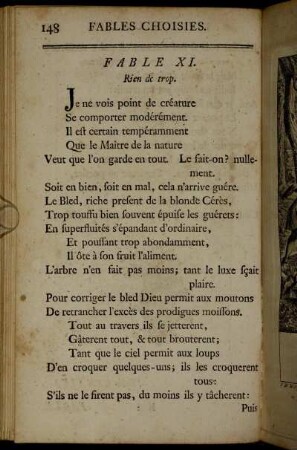 148 FABLES CHOISIES.
FABLE XI.
Rien de trop.
Je ne vois point de créature
Se comporter modérément.
Il est certain tempéramment
Que le Maitre de la nature
Veut que l'on garde en tout. Le fait-on? nulle-
ment.
Soit en bien, soit en mal, cela n'arrive guére.
Le Bled, riche present de la blonde Cérès,
Trop touffu bien souvent épuise les guérets:
En superfluités s'épandant d'ordinaire,
Et poussant trop abondamment,
Il ôte à son fruit l'aliment.
L'arbre n'en fait pas moins; tant le luxe sçait
plaire.
Pour corriger le bled Dieu permit aux moutons
De retrancher l'excès des prodigues moissons.
Tout au travers ils se jetterent,
Gâterent tout, & tout brouterent;
Tant que le ciel permit aux loups
D'en croquer quelques-uns; ils les croquerent
tous:
S'ils ne le firent pas, du moins ils y tâcherent:
Puis